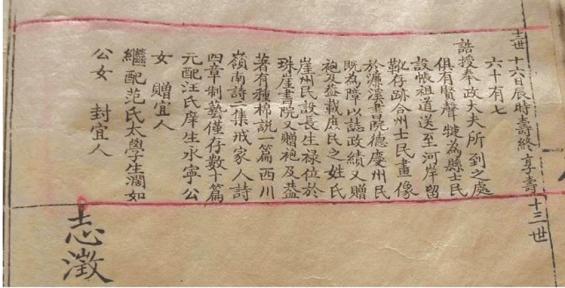 十六日辰時壽終享壽
六十有七
誥授奉政大夫所到之處
俱有賢聲犍為縣士民
設帳祖道送至河岸留
靴存跡合州士民畫像
於濂溪書院德慶州民
既為障以誌政績又贈
袍及葢載庶民之姓氏
崖州民設長生祿位於
珠崖書院又贈袍及葢
著有種棉說一篇西川
嶺南詩二集戒家人詩
四章制藝僅存數十篇
元配汪氏庠生永寧公
女 贈宜人
繼配范氏太學生濶如
公女 封宜人
志澂
十三世